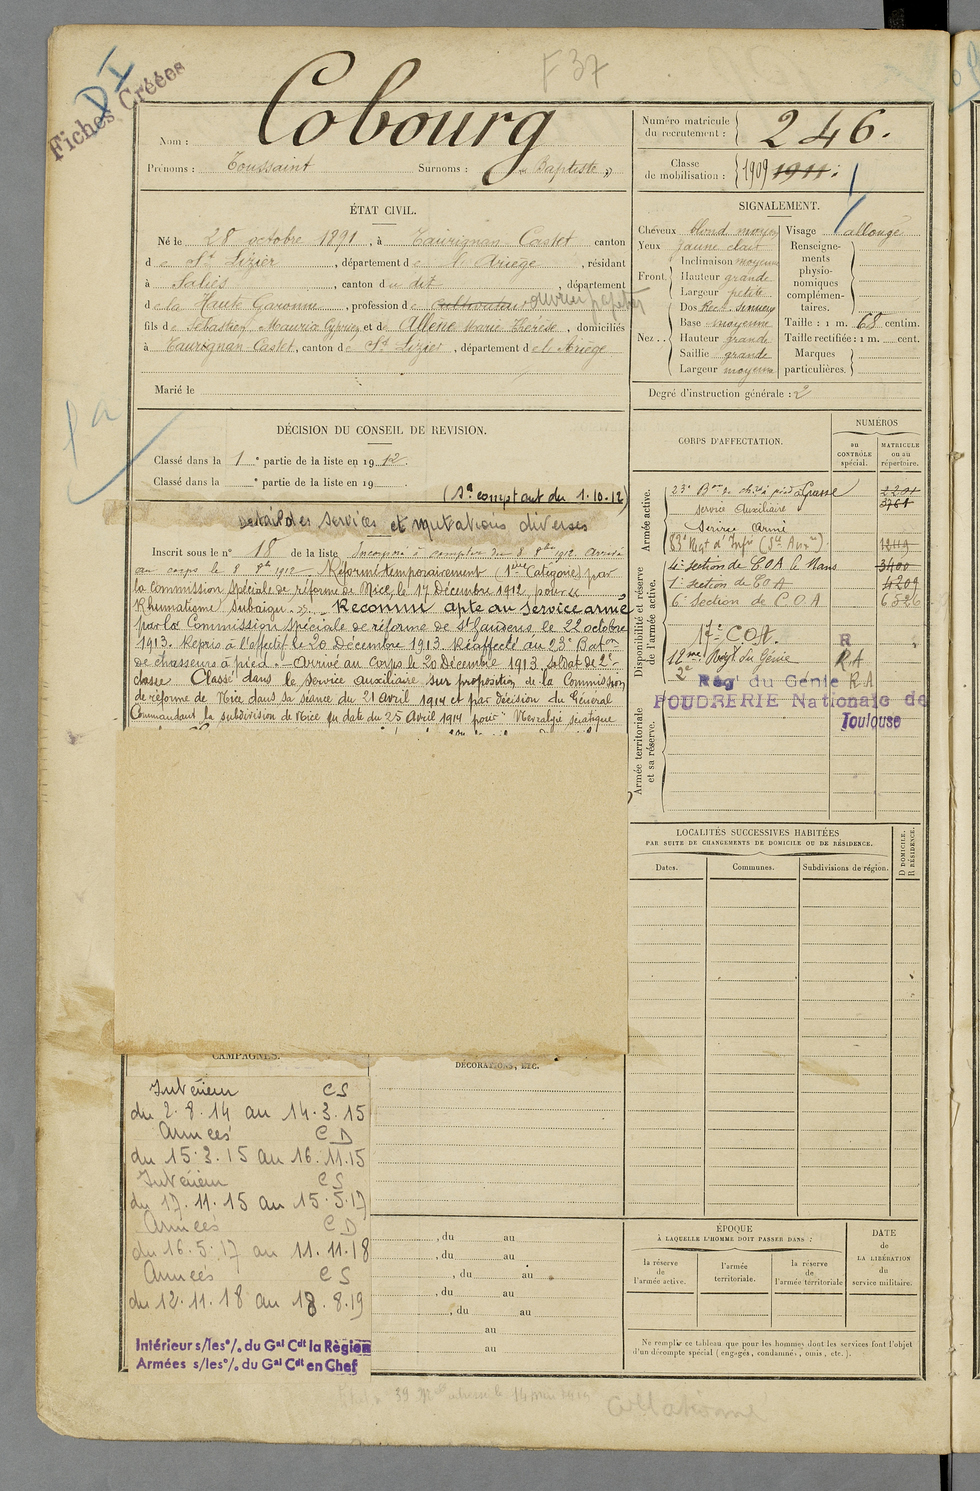 F 37
DI
Fiches Créées
Nom : Cobourg
Prénoms : Toussaint Surnoms : « Baptiste »
Numéro matricule du recrutement : 246.
Classe de mobilisation : 1909 1911
ÉTAT CIVIL.
Né le 28 octobre 1891, à Taurignan-Castet canton
de St Lizier, département de l'Ariège, résidant
à Saliès, canton du dit, département
de la Haute Garonne, profession de cultivateur ouvrier papetier
fils de Sébastien Maurice Cyprien et de Allene Marie Thérèse, domiciliés
à Taurignan-Castet, canton de St Lizier, département de l'Ariège
Marié le
SIGNALEMENT.
Cheveux blond moyen
Yeux jaune clair
Front. Inclinaison moyenne
Hauteur grande
Largeur petite
Nez . . Dos Rect. sinueux
Base moyenne
Hauteur grande
Saillie grande
Largeur moyenne
Visage allongé
Renseigne-
ments
physio-
nomiques
complémen-
taires.
Taille : 1 m. 68 centim.
Taille rectifiée : 1 m. cent.
Marques
particulières.
Degré d'instruction générale : 2
1a
DÉCISION DU CONSEIL DE REVISION.
Classé dans la 1e partie de la liste en 1912.
Classé dans la e partie de la liste en 19
(Sa comptant du 1.10.12)
Détail des services et mutations diverses
Inscrit sous le n° 18 de la liste Incorporé à compter du 8 8bre 1912. Arrivé
au corps le 8 8bre 1912 Réformé temporairement (1ère Catégorie) par
la Commission Spéciale de réforme de Nice, le 17 Décembre 1912, pour «
Rhumatisme Subaigu ». - Reconnu apte au service armé
par la Commission spéciale de réforme de St Gaudens le 22 octobre
1913. Repris à l'effectif le 20 Décembre 1913. Réaffecté au 23e Baton
de chasseurs à pied. - Arrivé au Corps le 20 Décembre 1913, soldat de 2e
classe Classé dans le service auxiliaire sur proposition de la Commission
de réforme de Nice, dans sa séance du 21 avril 1914 et par décision du Général
Commandant la subdivision de Nice en date du 25 avril 1914 pour "Nevralgie sciatique
CORPS D'AFFECTATION.
NUMÉROS
au CONTRÔLE spécial.
MATRICULE ou au répertoire.
Armée active.
23e Bon de chrs à pied Grasse 2201
service Auxiliaire 3761
Service Armé
Disponibilité et réserve de l'armée active.
83e Regt d'Infie (Sce Auxre)
4e section de COA Le Mans 3400
1e section de COA 4209
6e Section de C.O.A 6526
17e COA. R
12me Regt du Génie R.A
2e Reg' du Génie R A
POUDRERIE Nationale de
Toulouse
Armée territoriale et sa réserve.
LOCALITÉS SUCCESSIVES HABITÉES
PAR SUITE DE CHANGEMENTS DE DOMICILE OU DE RÉSIDENCE.
Dates. Communes. Subdivisions de région.
D DOMICILE.
R RÉSIDENCE.
CAMPAGNES.
DÉCORATIONS, ETC.
Intérieur CS
du 2.8.14 au 14.3.15
Armées CD
du 15.3.15 au 16.11.15
Intérieur CS
du 17.11.15 au 15.5.17
Armées CD
du 16.5.17 au 11.11.18
Armées CS
du 12.11.18 au 18.8.19
Intérieur s/les °/. du Gal Cdt la Région
Armées s/les °/. du Gal Cdt en Chef
, du au
, du au
, du au
, du au
, du au
au
au
ÉPOQUE
À LAQUELLE L'HOMME DOIT PASSER DANS :
la réserve de l'armée active.
l'armée territoriale.
la réserve de l'armée territoriale
DATE
de
LA LIBÉRATION
du
service militaire.
Ne remplir ce tableau que pour les hommes dont les services font l'objet
d'un décompte spécial (engagés, condamnés, omis, etc.).
Collationné